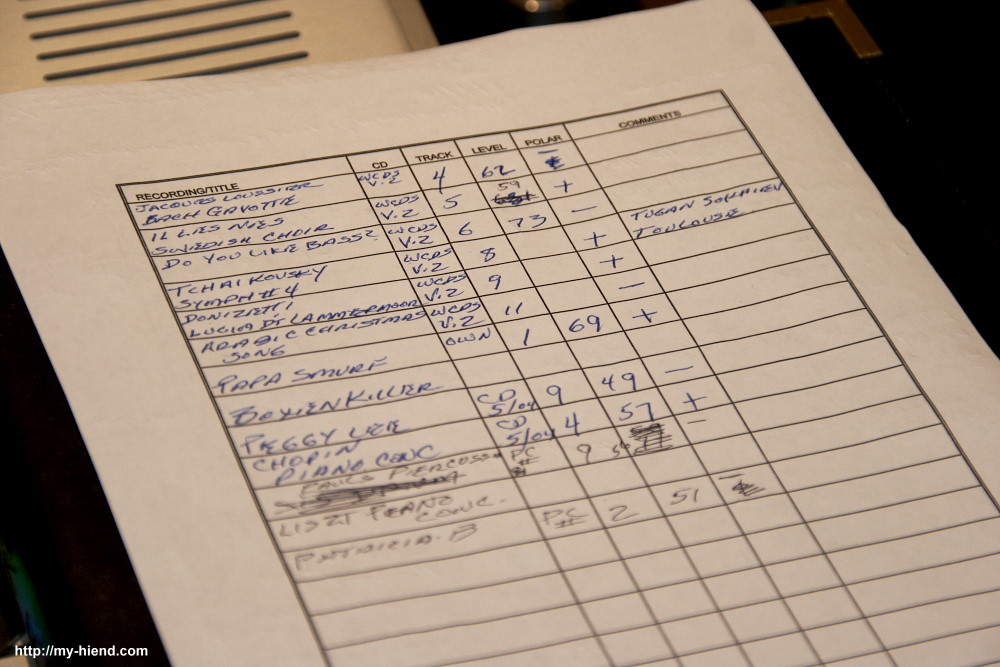 RECORDING/TITLE CD TRACK LEVEL POLAR COMMENTS
JACQUES LOUSSIER
BACH GAVOTTE WCDS V.2 4 62 −
IL LIES NIE
SWEDISH CHOIR WCDS V.2 5 59 +
DO YOU LIKE BASS? WCDS V.2 6 73 − TUGAN SOKHIEV
TOULOUSE
TCHAIKOVSKY
SYMPH #4 WCDS V.2 8 +
DONIZETTI
LUCIA DI LAMMERMOOR WCDS V.2 9 +
ARABIC CHRISTMAS
SONG WCDS V.2 11 −
PAPA SMURF OWN 1 69 +
BOXIEN KILLER
PEGGY LEE CD 5/04 9 49 −
CHOPIN
PIANO CONC CD 5/04 4 57 +
PERCOSSA PC # 9 −
LISZT PIANO
CONC.
PATRICIA. B PC # 2 51 −
http://my-hiend.com